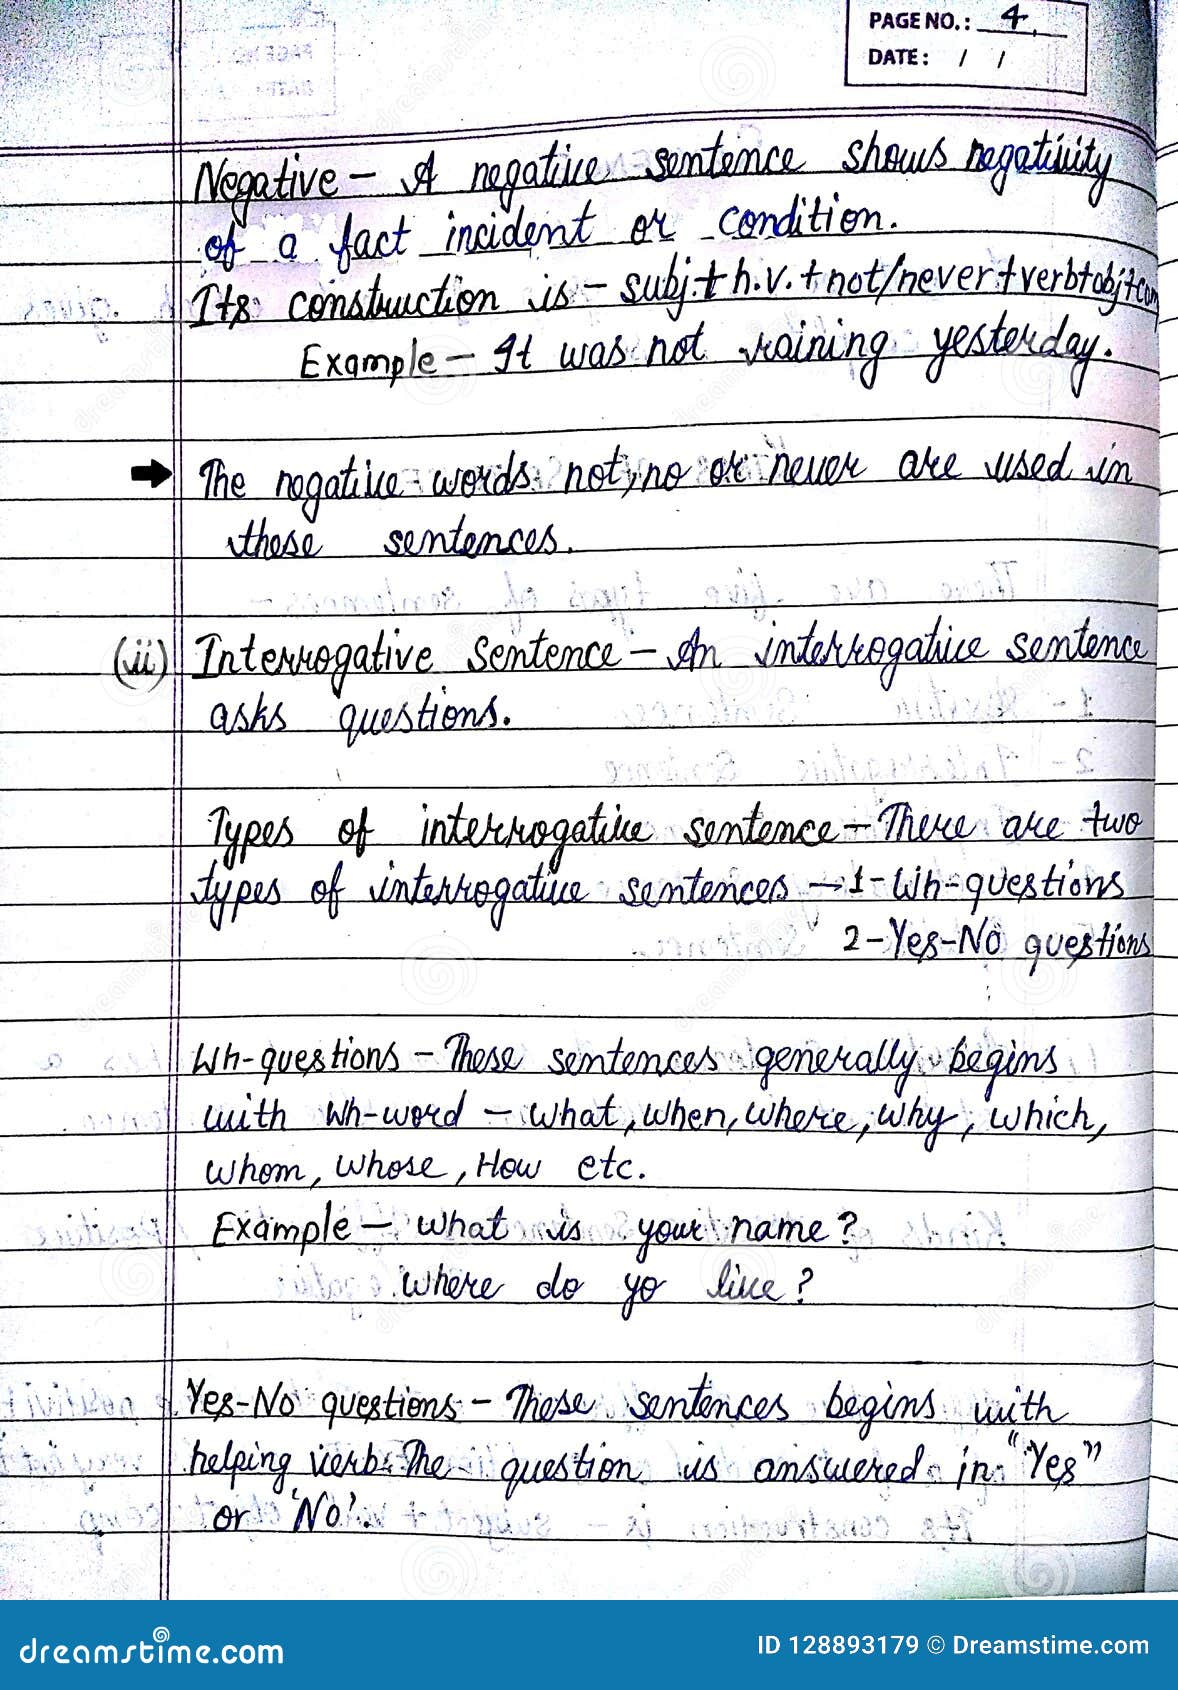 PAGE NO.: 4
DATE: / /
Negative – A negative sentence shows negativity
of a fact incident or condition.
Its construction is – subj.+h.v.+not/never+verb+obj+com
Example – It was not raining yesterday.
The negative words not, no or never are used in
these sentences.
(ii) Interrogative Sentence – An interrogative sentence
asks questions.
Types of interrogative sentence – There are two
types of interrogative sentences → 1-Wh-questions
2-Yes-No questions
Wh-questions – These sentences generally begins
with Wh-word – What, When, Where, Why, Which,
Whom, Whose, How etc.
Example – What is your name?
Where do yo live?
Yes-No questions – These sentences begins with
helping verb. The question is answered in "Yes"
or 'No'.
dreamstime.com
ID 128893179 © Dreamstime.com